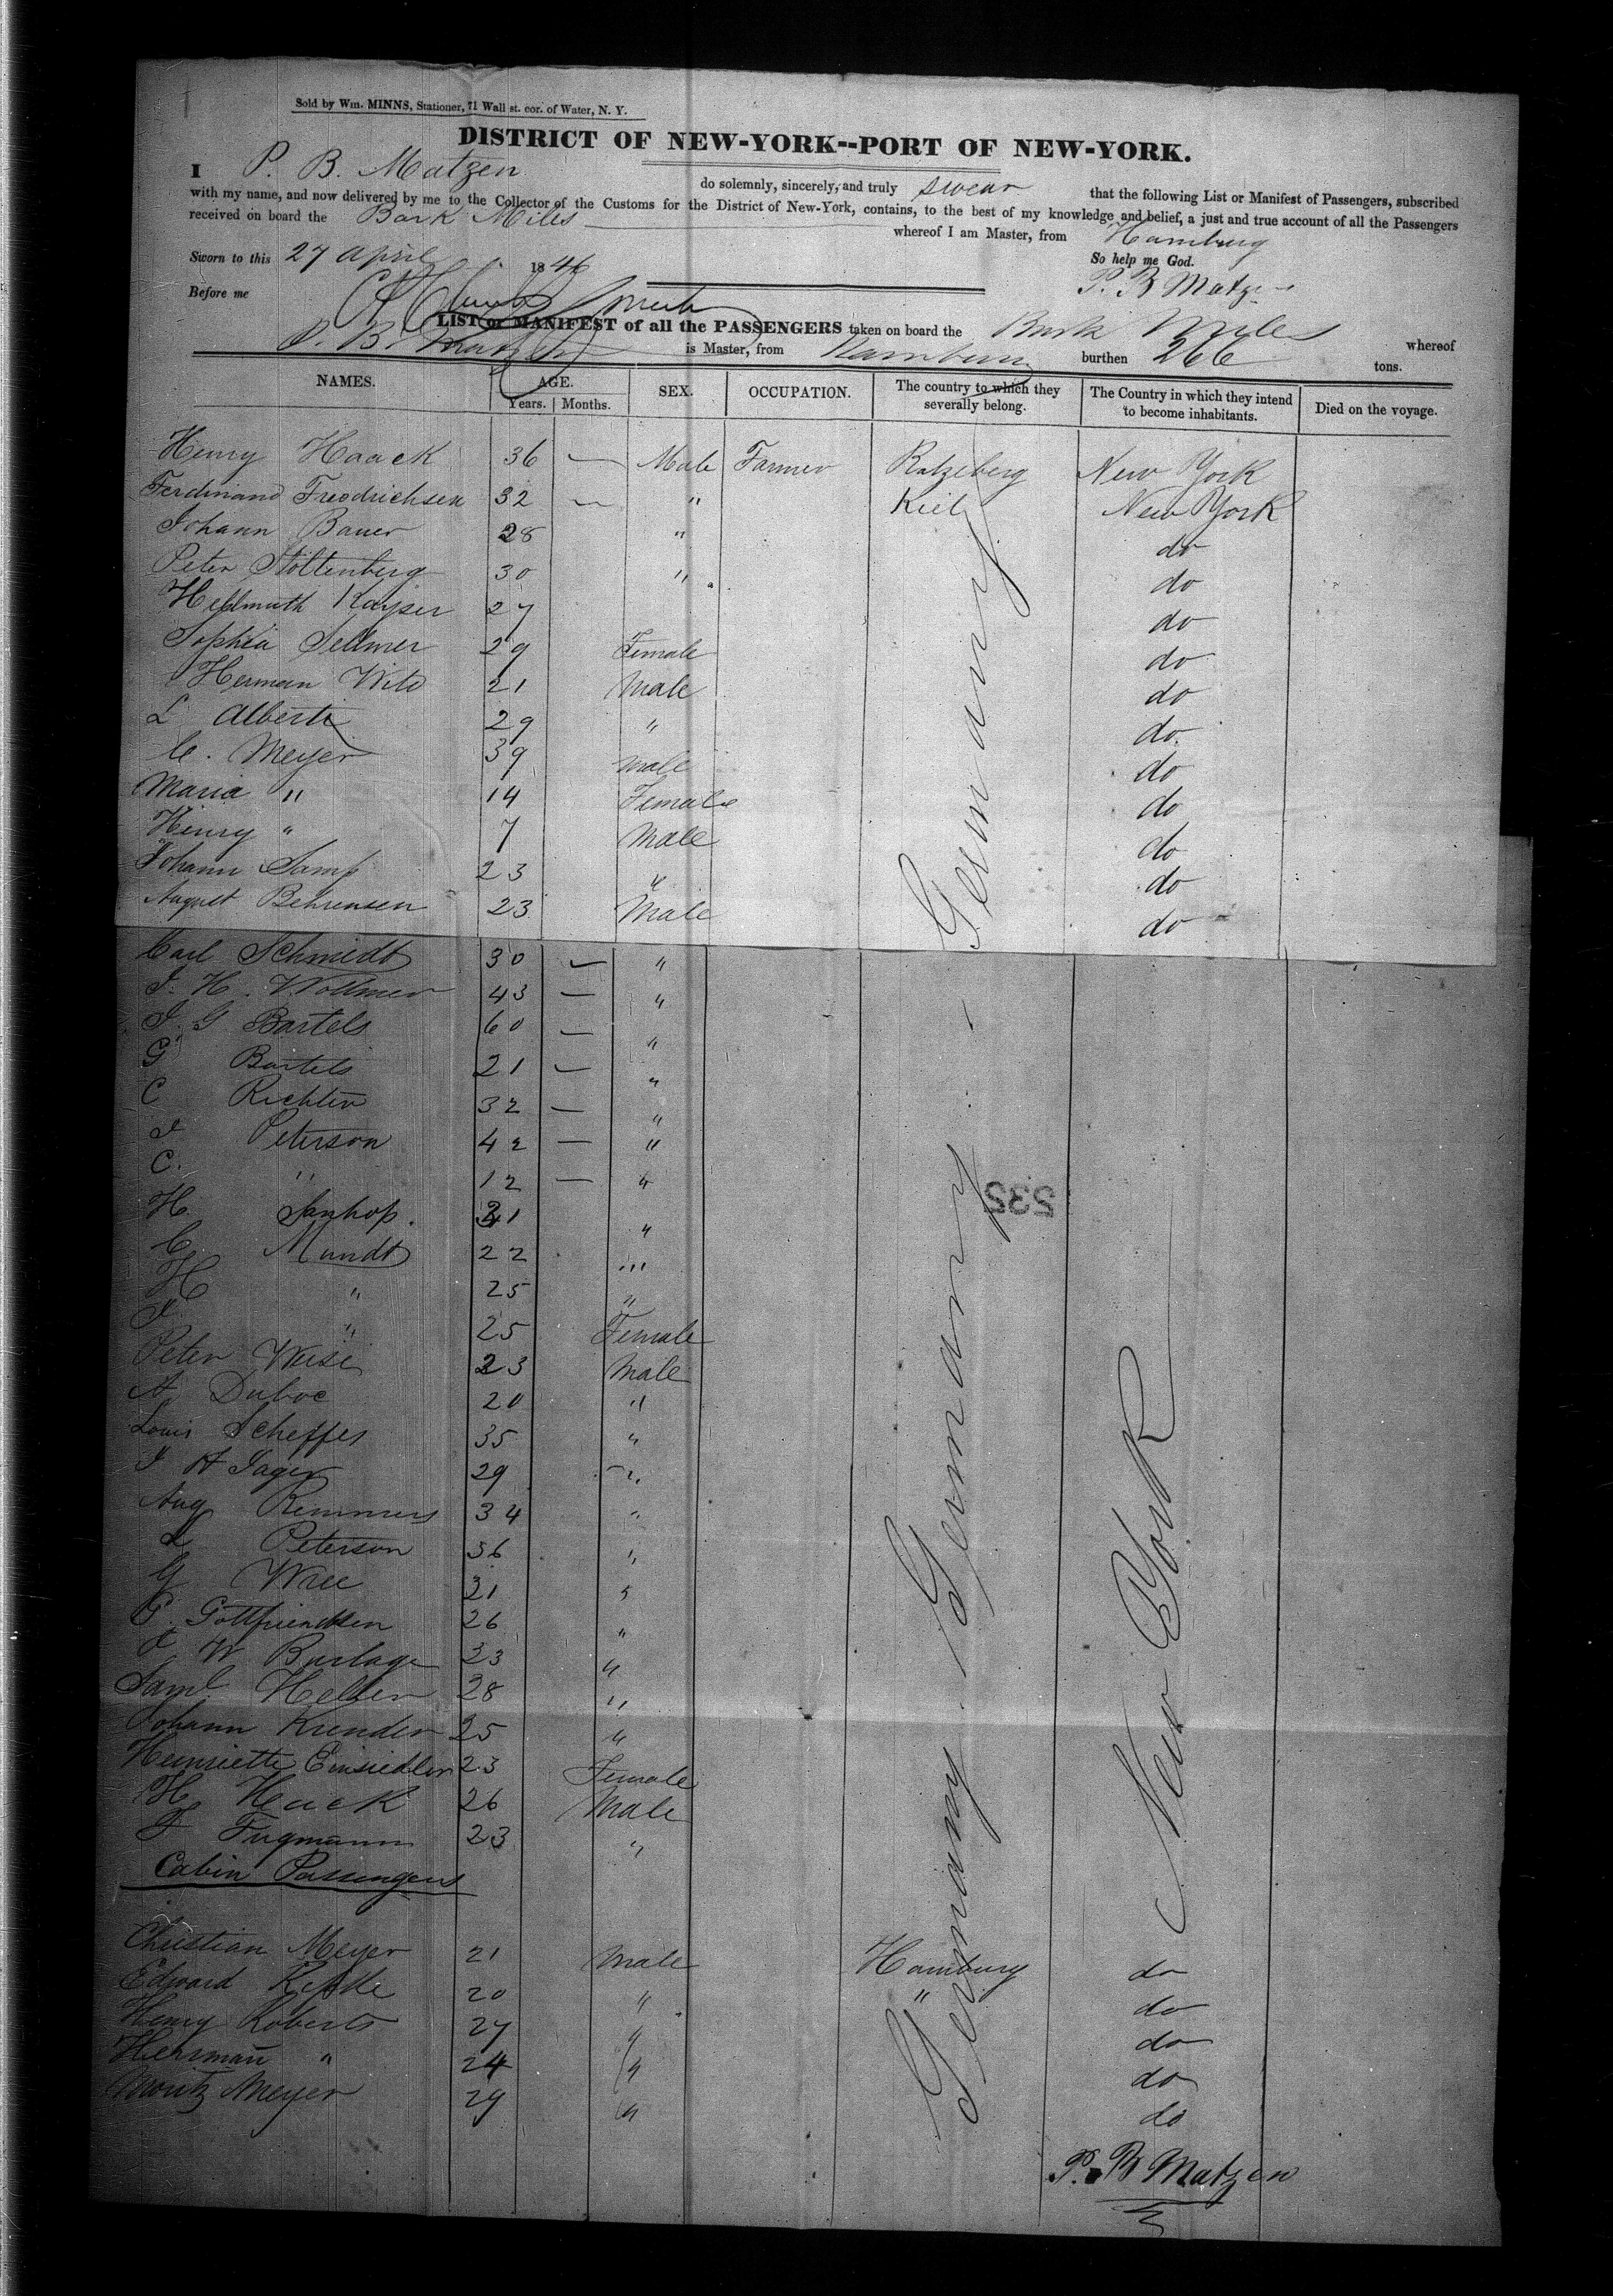 Sold by Wm. MINNS, Stationer, 71 Wall st. cor. of Water, N. Y.
DISTRICT OF NEW-YORK--PORT OF NEW-YORK.
I P. B. Matzen do solemnly, sincerely, and truly swear that the following List or Manifest of Passengers, subscribed
with my name, and now delivered by me to the Collector of the Customs for the District of New-York, contains, to the best of my knowledge and belief, a just and true account of all the Passengers
received on board the Bark Miles whereof I am Master, from Hamburg
Sworn to this 27 April 1846 So help me God.
Before me P. B Matzen
LIST or MANIFEST of all the PASSENGERS taken on board the Bark Miles whereof
P. B. Matzen is Master, from Hamburg burthen 266 tons.
NAMES. AGE. Years. Months. SEX. OCCUPATION. The country to which they severally belong. The Country in which they intend to become inhabitants. Died on the voyage.
Henry Haack 36 — Male Farmer Ratzeberg New York
Ferdinand Fredrichsen 32 — " Kiel New York
Johann Bauer 28 " do
Peter Stoltenberg 30 " do
Hellmuth Kayser 27 do
Sophia Sellmer 29 Female do
Herman Wito 21 Male do
L Alberti 29 " do
C. Meyer 39 Male do
Maria " 14 Female do
Henry " 7 Male do
Johann Samp 23 " do
August Behrensen 23 Male do
Germany
Carl Schmidt 30 — "
J. H. Wollmer 43 — "
J. G Bartels 60 — "
G Bartels 21 — "
C Richter 32 — "
J Peterson 42 — "
C. " 12 — "
H Janhop. "
C. Mundt 22 "
H " 25 "
J. " 25 Female
Peter Weise 23 Male
A Duboc 20 "
Louis Scheffes 35 "
J A Jager 29 "
Aug Remmers 34 "
L Peterson 36 "
G Wree 21 "
P. Gottfriendsen 26 "
J W Burlage 23 "
Saml. Heller 28 "
Johann Krender 25 "
Henriette Einsiedler 23 Female
H Haack 26 Male
F Fugmann 23 "
Germany
535
New York
Cabin Passengers
Christian Meyer 21 Male Hamburg do
Edward 20 " " do
Henry Roberts 27 " do
Herman " 24 " do
Moritz Meyer 29 " do
Germany
P. B Matzen